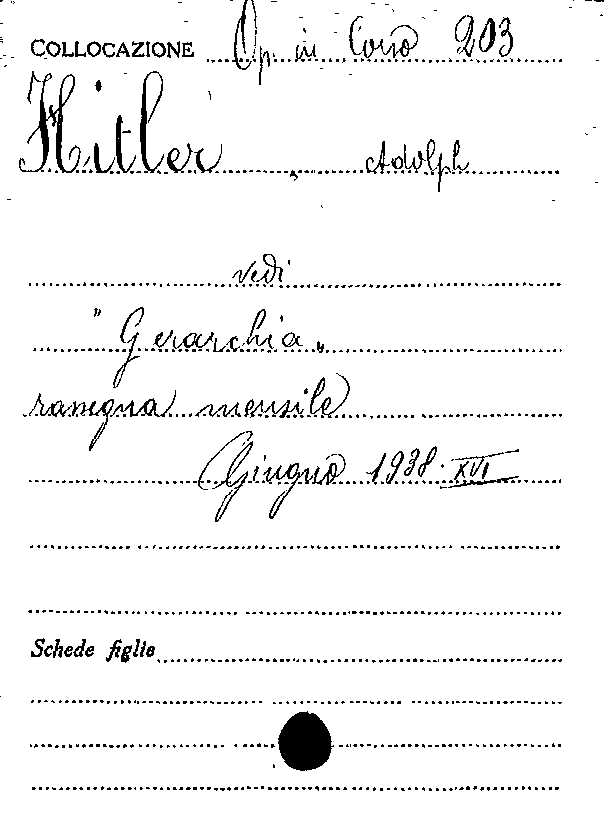 COLLOCAZIONE Op. in Corso 203
Hitler, Adolph
vedi
"Gerarchia"
rassegna mensile
Giugno 1938. XVI
Schede figlie